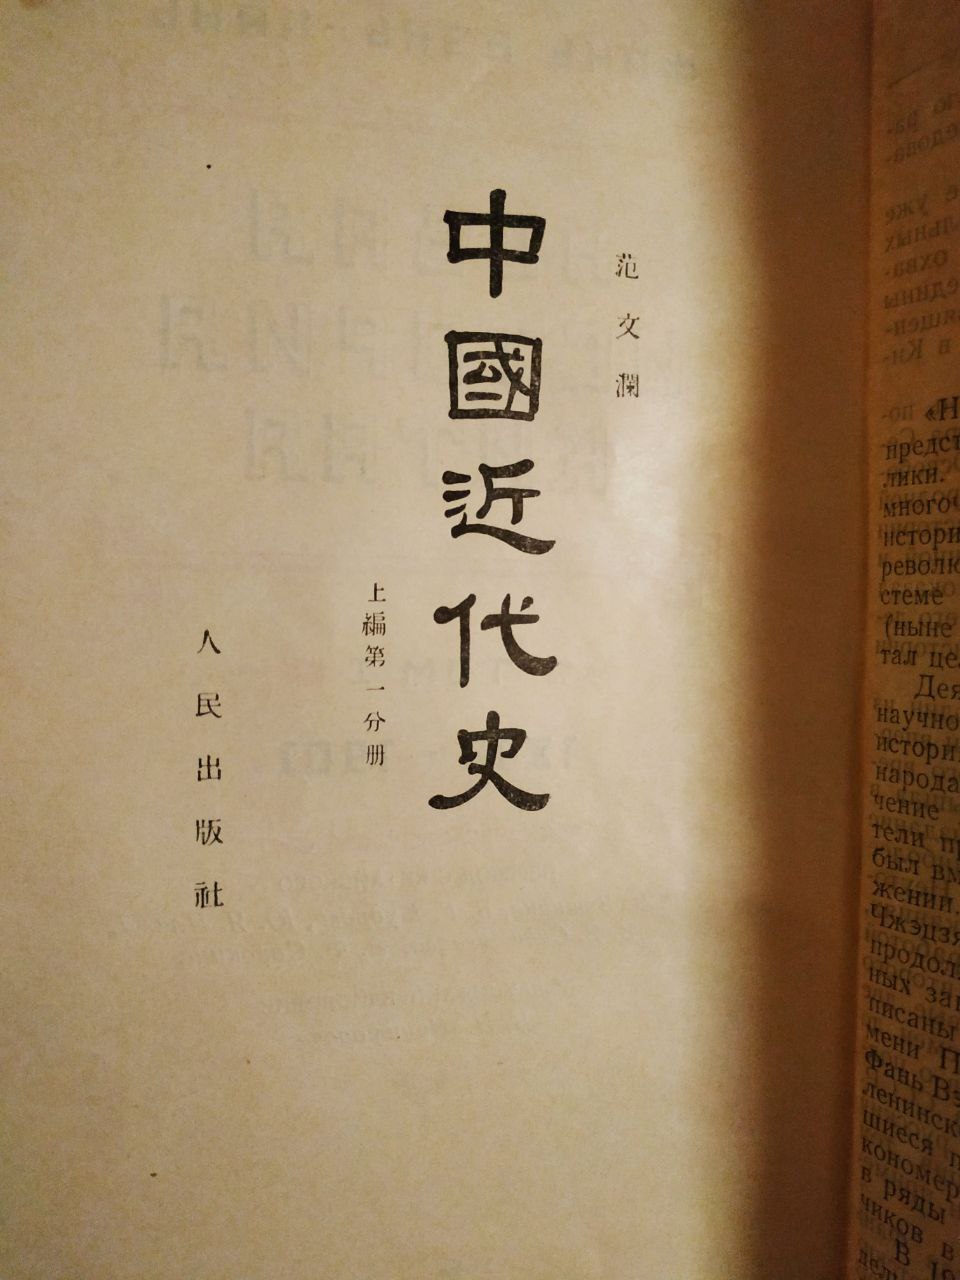 范文瀾
中國近代史
上編第一分册
人民出版社
«Н
предст
лики.
много
истори
револю
стеме
(ныне
тал це
Дея
научно
истори
народа
чение
тели п
был вм
жении.
Чжэцзя
продол
ных за
писаны
мени П
Фань В
ленинск
шиеся п
кономер
в ряды
чиков в
В 19